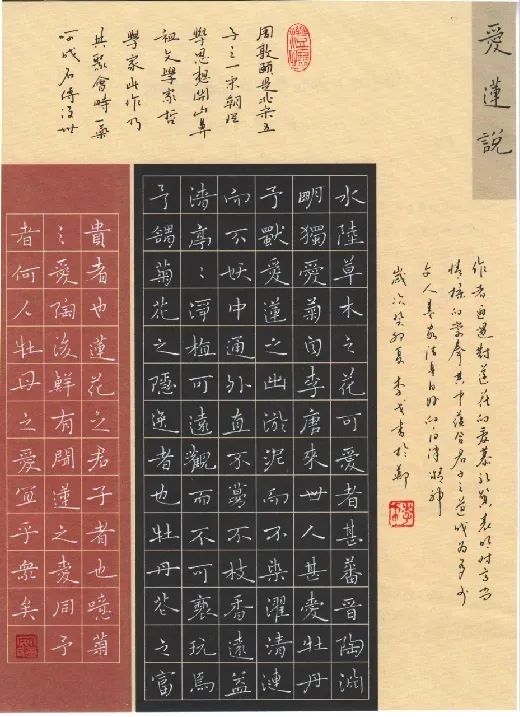 愛蓮說
周敦頤是北宋五
子之一宋朝理
學思想開山鼻
祖文學家哲
學家此作乃
其聚會時一氣
呵成名傳後世
水陸草木之花可愛者甚蕃晉陶淵
明獨愛菊自李唐來世人甚愛牡丹
予獨愛蓮之出淤泥而不染濯清漣
而不妖中通外直不蔓不枝香遠益
清亭々淨植可遠觀而不可褻玩焉
予謂菊花之隱逸者也牡丹花之富
貴者也蓮花之君子者也噫菊
之愛陶後鮮有聞蓮之愛同予
者何人牡丹之愛宜乎眾矣
作者通過對蓮花的愛慕
情操的崇奉其中蘊含君子之道成為多少
文人潔身自好的
歲次癸卯夏李戈書於鄭